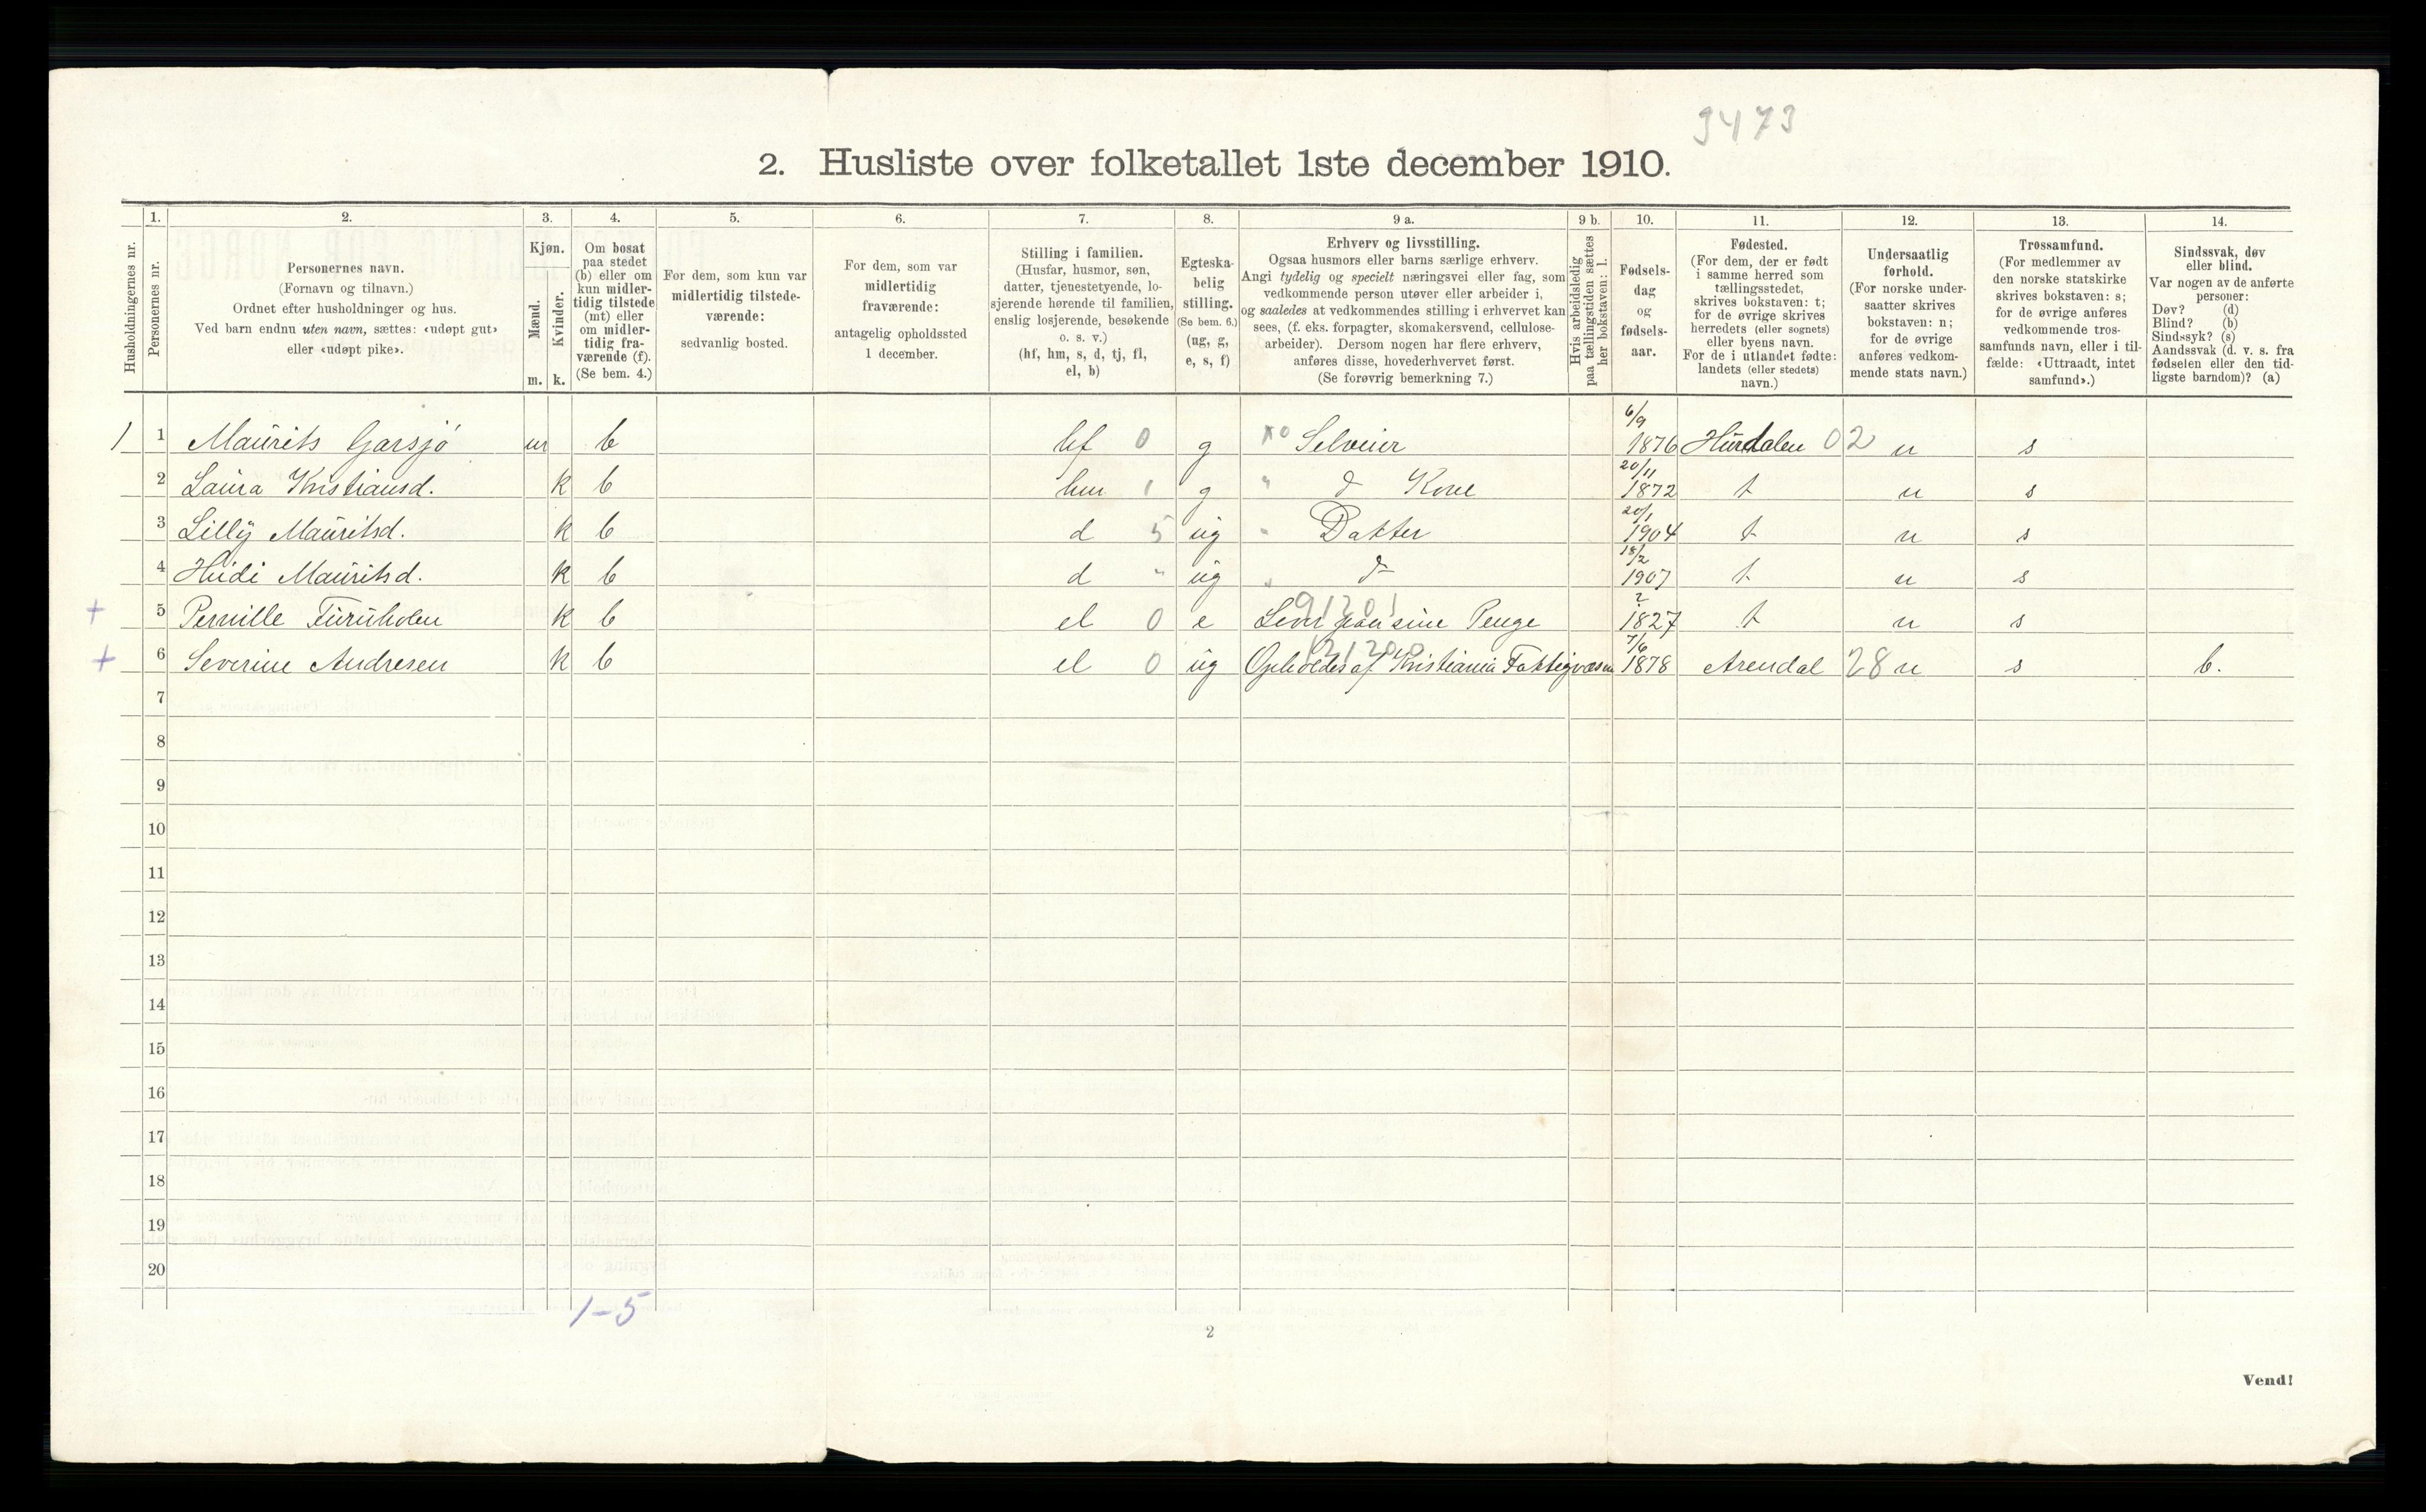 3473
2. Husliste over folketallet 1ste december 1910.
Husholdningernes nr.
1. Personernes nr.
2. Personernes navn. (Fornavn og tilnavn.) Ordnet efter husholdninger og hus. Ved barn endnu uten navn, sættes: «udøpt gut» eller «udøpt pike».
3. Kjøn. Mænd. m. Kvinder. k.
4. Om bosat paa stedet (b) eller om kun midlertidig tilstede (mt) eller om midlertidig fraværende (f). (Se bem. 4.)
5. For dem, som kun var midlertidig tilstedeværende: sedvanlig bosted.
6. For dem, som var midlertidig fraværende: antagelig opholdssted 1 december.
7. Stilling i familien. (Husfar, husmor, søn, datter, tjenestetyende, losjerende hørende til familien, enslig losjerende, besøkende o. s. v.) (hf, hm, s, d, tj, fl, el, b)
8. Egteskabelig stilling. (Se bem. 6.) (ug, g, e, s, f)
9 a. Erhverv og livsstilling. Ogsaa husmors eller barns særlige erhverv. Angi tydelig og specielt næringsvei eller fag, som vedkommende person utøver eller arbeider i, og saaledes at vedkommendes stilling i erhvervet kan sees, (f. eks. forpagter, skomakersvend, cellulosearbeider). Dersom nogen har flere erhverv, anføres disse, hovederhvervet først. (Se forøvrig bemerkning 7.)
9 b. Hvis arbeidsledig paa tællingstiden sættes her bokstaven: l.
10. Fødselsdag og fødselsaar.
11. Fødested. (For dem, der er født i samme herred som tællingsstedet, skrives bokstaven: t; for de øvrige skrives herredets (eller sognets) eller byens navn. For de i utlandet fødte: landets (eller stedets) navn.)
12. Undersaatlig forhold. (For norske undersaatter skrives bokstaven: n; for de øvrige anføres vedkommende stats navn.)
13. Trossamfund. (For medlemmer av den norske statskirke skrives bokstaven: s; for de øvrige anføres vedkommende trossamfunds navn, eller i tilfælde: «Uttraadt, intet samfund».)
14. Sindssvak, døv eller blind. Var nogen av de anførte personer: Døv? (d) Blind? (b) Sindssyk? (s) Aandssvak (d. v. s. fra fødselen eller den tidligste barndom)? (a)
1 1 Maurits Garsjó m b hf 0 g x0 Selveier 6/9 1876 Hurdalen 02 n s
2 Laura Kristiansd. k b hm 1 g " d Kone 20/11 1872 t n s
3 Lilly Mauritsd. k b d 5 ug " Datter 20/1 1904 t n s
4 Heidi Mauritsd. k b d " ug " d 18/2 1907 t n s
+ 5 Pernille Furuholen k b el 0 e Lever paa sine Penge 91201 ? 1827 t n s
+ 6 Severine Andresen k b el 0 ug Opholdes af Kristiania Fattigvæsen 121200 7/6 1878 Arendal 28 n s b.
7
8
9
10
11
12
13
14
15
16
17
18
19
20
1-5
2
Vend!